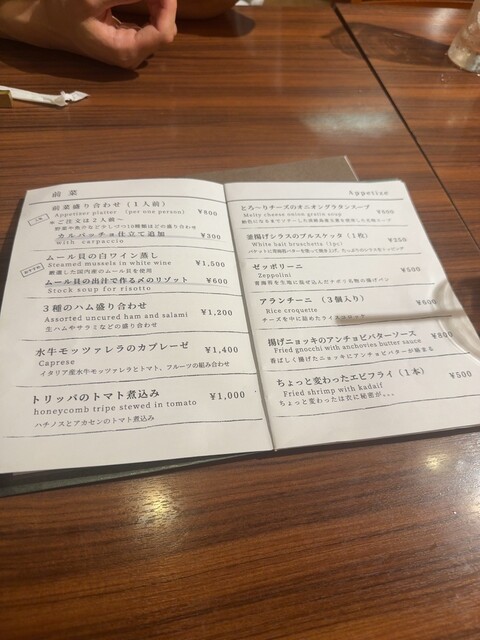 前菜
前菜盛り合わせ（１人前） ¥800
Appetizer platter (per one person)
※ご注文は２人前～
カルパッチョ仕立て追加 ¥300
with carpaccio
ムール貝の白ワイン蒸し ¥1,500
Steamed mussels in white wine
厳選した国内産のムール貝を使用
ムール貝の出汁で作る〆のリゾット ¥600
Stock soup for risotto
３種のハム盛り合わせ ¥1,200
Assorted uncured ham and salami
生ハムやサラミなどの盛り合わせ
水牛モッツァレラのカプレーゼ ¥1,400
Caprese
イタリア産水牛モッツァレラとトマト、フルーツの組み合わせ
トリッパのトマト煮込み ¥1,000
honeycomb tripe stewed in tomato
ハチノスとアカセンのトマト煮込み
Appetize
とろ～りチーズのオニオングラタンスープ ¥600
Melty cheese onion gratin soup
釜揚げシラスのブルスケッタ（１枚） ¥350
White bait bruschetta (1pc)
ゼッポリーニ ¥500
Zeppolini
青海苔を生地に混ぜ込んだナポリ名物の揚げパン
アランチーニ （３個入り） ¥600
Rice croquette
チーズを中に詰めたライスコロッケ
揚げニョッキのアンチョビバターソース ¥800
Fried gnocchi with anchovies butter sauce
香ばしく揚げたニョッキにアンチョビバターが絡まる
ちょっと変わったエビフライ（１本） ¥500
Fried shrimp with kadaif
ちょっと変わったは衣に秘密が。。。